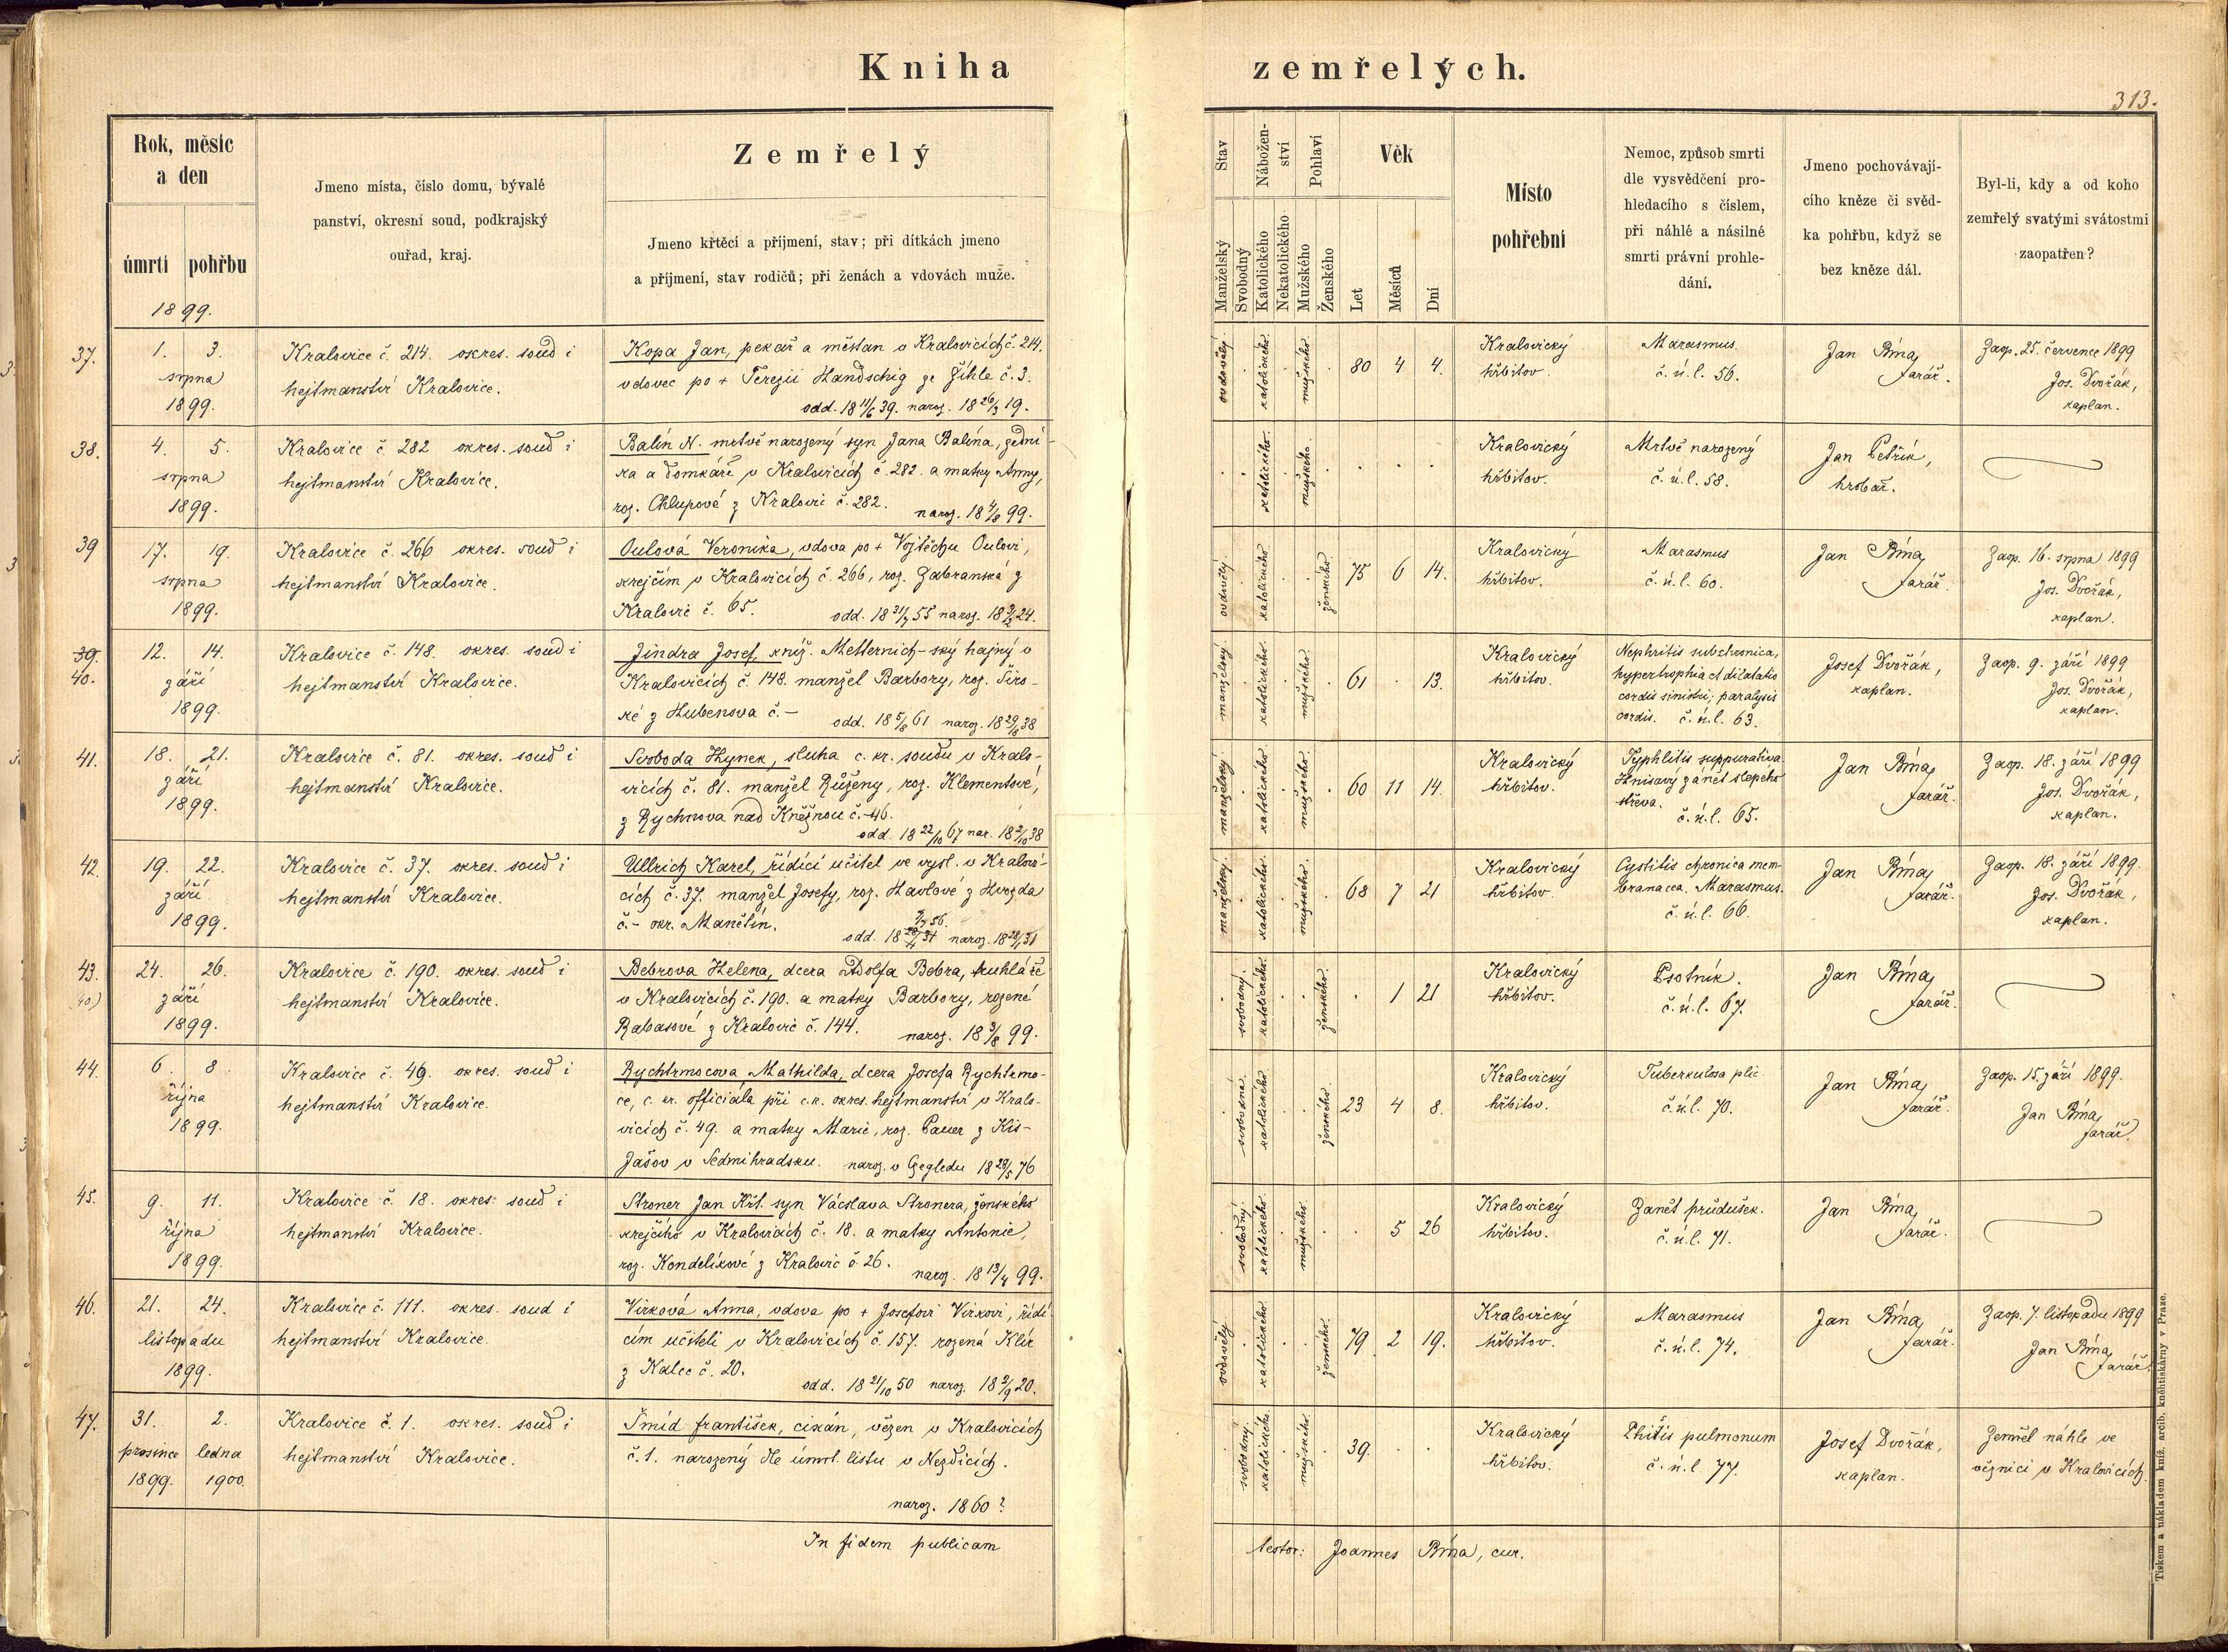 Kniha zemřelých.
313.
Rok, měsíc
a den
úmrtí
pohřbu
Jmeno místa, číslo domu, bývalé
panství, okresní soud, podkrajský
ouřad, kraj.
Zemřelý
Jmeno křtěcí a příjmení, stav; při dítkách jmeno
a příjmení, stav rodičů; při ženách a vdovách muže.
Stav
Manželský
Svobodný
Nábožen-
ství
Katolického
Nekatolického
Pohlaví
Mužského
Ženského
Věk
Let
Měsíců
Dní
Místo
pohřební
Nemoc, způsob smrti
dle vysvědčení pro-
hledacího s číslem,
při náhlé a násilné
smrti právní prohle-
dání.
Jmeno pochovávají-
cího kněze či svěd-
ka pohřbu, když se
bez kněze dál.
Byl-li, kdy a od koho
zemřelý svatými svátostmi
zaopatřen?
1899.
37.
1. 3.
srpna
1899.
Kralovice č. 214. okres. soud i
hejtmanství Kralovice.
Kopa Jan, pekař a měšťan v Kralovicích č. 214.
vdovec po + Terezii Handschig ze Žihle č. 3.
odd. 18 11/6 39. naroz. 18 26/3 19.
ovdovělý.
katolického.
mužského.
80 4 4.
Kralovický
hřbitov.
Marasmus.
č. ú. l. 56.
Jan Říma,
farář.
Zaop. 25. července 1899
Jos. Dvořák,
kaplan.
38.
4. 5.
srpna
1899.
Kralovice č. 282 okres. soud i
hejtmanství Kralovice.
Balín N. mrtvě narozený syn Jana Balína, zední-
ka a domkáře v Kralovicích č. 282. a matky Anny,
roz. Chlupové z Kralovic č. 282. naroz. 18 4/8 99.
katolického.
mužského.
Kralovický
hřbitov.
Mrtvě narozený
č. ú. l. 58.
Jan Petřík,
hrobař.
39
17. 19.
srpna
1899.
Kralovice č. 266 okres. soud i
hejtmanství Kralovice.
Oulová Veronika, vdova po + Vojtěchu Oulovi,
krejčím v Kralovicích č. 266, roz. Zabranská z
Kralovic č. 65. odd. 18 31/7 55 naroz. 18 3/2 24.
ovdovělý.
katolického.
ženského.
75 6 14.
Kralovický
hřbitov.
Marasmus
č. ú. l. 60.
Jan Říma,
farář.
Zaop. 16. srpna 1899
Jos. Dvořák,
kaplan.
39.
40.
12. 14.
září
1899.
Kralovice č. 148. okres. soud i
hejtmanství Kralovice.
Jindra Josef, kníž. Metternich-ský hajný v
Kralovicích č. 148. manžel Barbory, roz. Širo-
ké z Hubenova č. – odd. 18 5/8 61 naroz. 18 29/8 38
manželský.
katolického.
mužského.
61 13.
Kralovický
hřbitov.
Nephritis subchronica,
hypertrophia et dilatatio
cordis sinistri; paralysis
cordis. č. ú. l. 63.
Josef Dvořák,
kaplan.
Zaop. 9. září 1899
Jos. Dvořák,
kaplan.
41.
18. 21.
září
1899.
Kralovice č. 81. okres. soud i
hejtmanství Kralovice.
Svoboda Hynek, sluha c. kr. soudu v Kralo-
vicích č. 81. manžel Růženy, roz. Klementové,
z Rychnova nad Kněžnou č.-46.
odd. 18 22/10 67 nar. 18 2/10 38
manželský.
katolického.
mužského.
60 11 14.
Kralovický
hřbitov.
Typhlitis suppurativa
Hnisavý zánět slepého
střeva.
č. ú. l. 65.
Jan Říma,
farář.
Zaop. 18. září 1899
Jos. Dvořák,
kaplan.
42.
19. 22.
září
1899.
Kralovice č. 37. okres. soud i
hejtmanství Kralovice.
Ullrich Karel, řídící učitel ve výsl. v Kralovi-
cích č. 37. manžel Josefy, roz. Havlové z Hvozda
č.– okr. Manětín.
odd. 18 naroz. 18 28/1 31
manželský.
katolického.
mužského.
68 7 21
Kralovický
hřbitov.
Cystitis chronica mem-
branacea. Marasmus.
č. ú. l. 66.
Jan Říma,
farář.
Zaop. 18. září 1899.
Jos. Dvořák,
kaplan.
43.
40.)
24. 26.
září
1899.
Kralovice č. 190. okres. soud i
hejtmanství Kralovice.
Bebrova Helena, dcera Adolfa Bebra, truhláře
v Kralovicích č. 190. a matky Barbory, rozené
Rabasové z Kralovic č. 144. naroz. 18 3/8 99.
svobodný.
katolického.
ženského.
1 21
Kralovický
hřbitov.
Psotník.
č. ú. l. 67.
Jan Říma,
farář.
44.
6. 8.
října
1899.
Kralovice č. 49. okres. soud i
hejtmanství Kralovice.
Rychtrmocova Mathilda, dcera Josefa Rychtrmo-
ce, c. kr. officiála při c.k. okres. hejtmanství v Kralo-
vicích č. 49. a matky Marie, roz. Pauer z Kis-
Jašov v Sedmihradsku. naroz. v Cegledu 18 28/5 76
svobodná.
katolického
ženského.
23 4 8.
Kralovický
hřbitov.
Tuberkulosa plic
č. ú. l. 70.
Jan Říma,
farář.
Zaop. 15. září 1899.
Jan Říma,
farář.
45.
9. 11.
října
1899.
Kralovice č. 18. okres. soud i
hejtmanství Kralovice.
Stroner Jan Křt. syn Václava Stronera, ženského
krejčího v Kralovicích č. 18. a matky Antonie,
roz. Kondelíkové z Kralovic č. 26. naroz. 18 13/4 99.
svobodný.
katolického.
mužského.
5 26
Kralovický
hřbitov.
Zánět průdušek.
č. ú. l. 71.
Jan Říma,
farář.
46.
21. 24.
listopadu
1899.
Kralovice č. 111. okres. soud i
hejtmanství Kralovice.
Virková Anna, vdova po + Josefovi Virkovi, řídí-
cím učiteli v Kralovicích č. 157. rozená Klír
z Kalce č. 20. odd. 18 21/10 50 naroz. 18 2/9 20.
ovdovělý
katolického.
ženského.
79 2 19.
Kralovický
hřbitov.
Marasmus
č. ú. l. 74.
Jan Říma,
farář.
Zaop. 7. listopadu 1899
Jan Říma,
farář.
47.
31. 2.
prosince ledna
1899. 1900.
Kralovice č. 1. okres. soud i
hejtmanství Kralovice.
Šmíd František, cikán, vězen v Kralovicích
č. 1. narozený dle úmrt. listu v Nezdicích.
naroz. 1860?
svobodný.
katolického.
mužského.
39.
Kralovický
hřbitov.
Phitis pulmonum
č. ú. l. 77.
Josef Dvořák,
kaplan.
Zemřel náhle ve
věznici v Kralovicích.
In fidem publicam
testor: Joannes Říma, cur.
Tiskem a nákladem kníž. arcib. knihtiskárny v Praze.